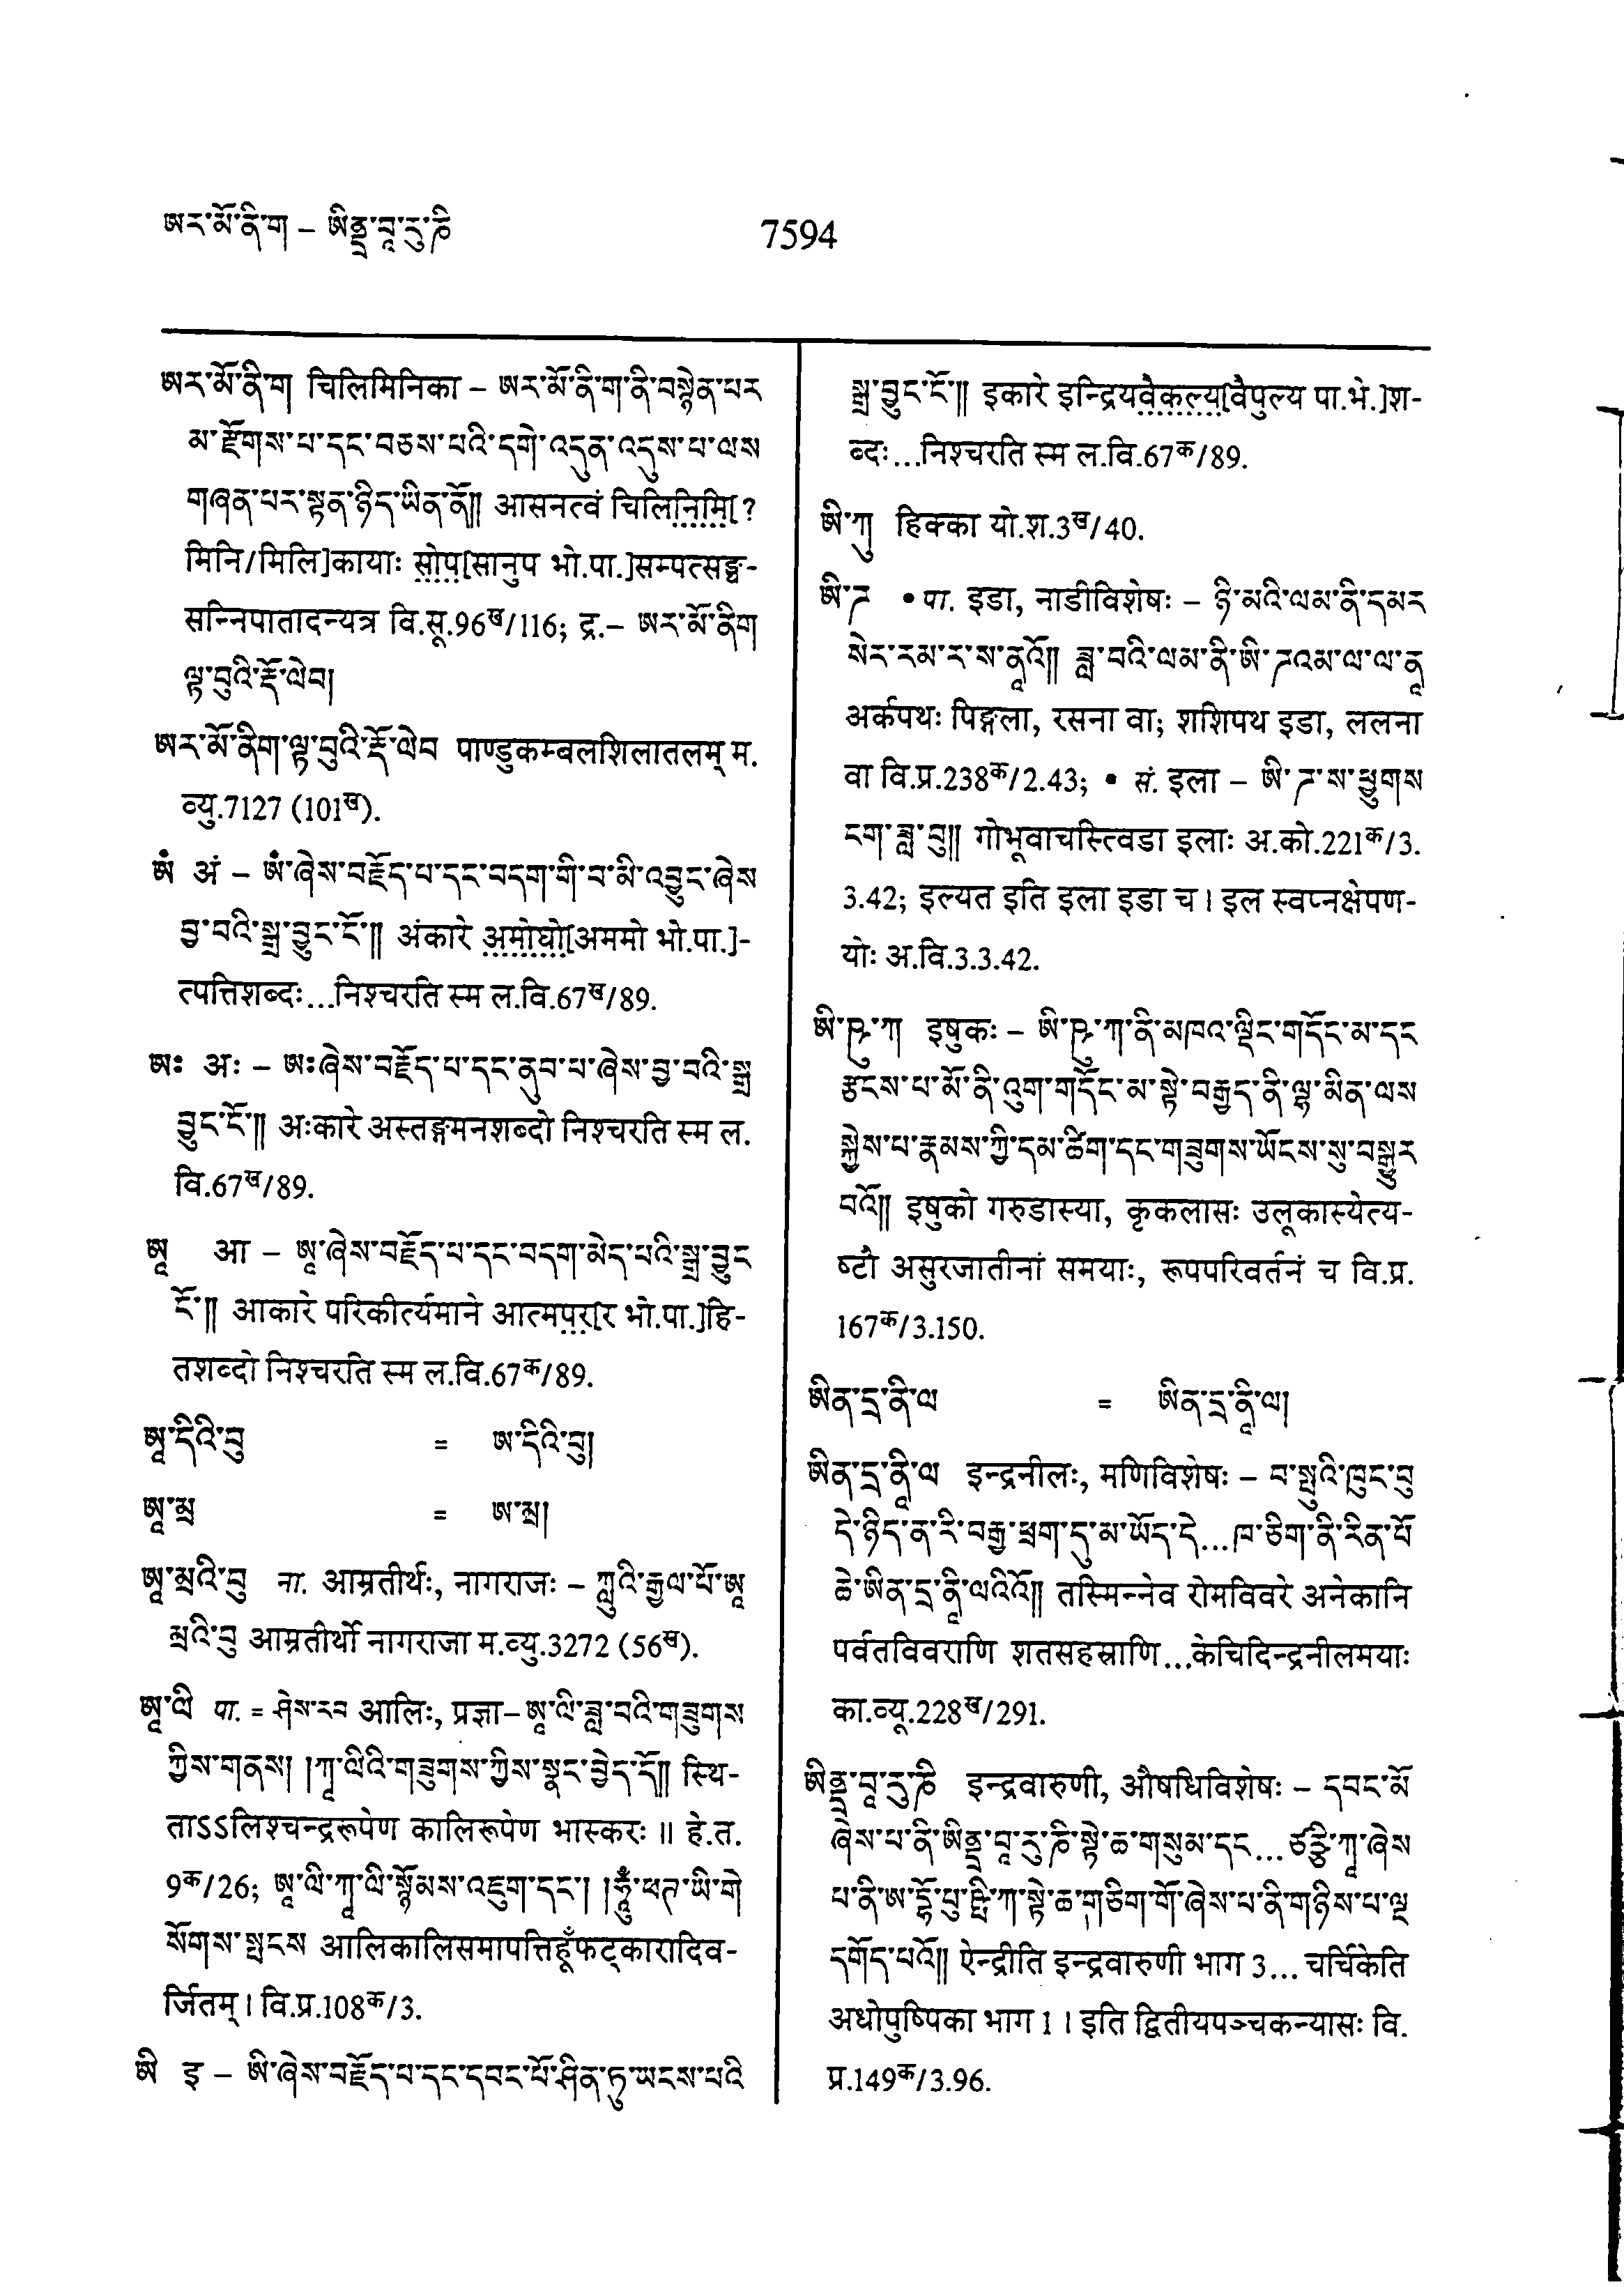 ཨར་མོ་ནི་ག – ཨིནྡྲ་བཱ་རུ་ཎི
7594
ཨར་མོ་ནི་ག चिलिमिनिका – ཨར་མོ་ནི་ག་ནི་བསྙེན་པར
མ་རྫོགས་པ་དང་བཅས་པའི་དགེ་འདུན་འདུས་པ་ལས
གཞན་པར་སྟན་ཉིད་ཡིན་ནོ།། आसनत्वं चिलिनिमि[?
मिनि/मिलि]कायाः सोप[सानुप भो.पा.]सम्पत्सङ्घ-
सन्निपातादन्यत्र वि.सू.96ख/116; द्र.– ཨར་མོ་ནིག
ལྟ་བུའི་རྡོ་ལེབ།
ཨར་མོ་ནིག་ལྟ་བུའི་རྡོ་ལེབ पाण्डुकम्बलशिलातलम् म.
व्यु.7127 (101ख).
ཨཾ अं – ཨཾ་ཞེས་བརྗོད་པ་དང་བདག་གི་བ་མི་འབྱུང་ཞེས
བྱ་བའི་སྒྲ་བྱུང་ངོ་།། अंकारे अमोघो[अममो भो.पा.]-
त्पत्तिशब्दः...निश्चरति स्म ल.वि.67ख/89.
ཨཿ अः – ཨཿཞེས་བརྗོད་པ་དང་ནུབ་པ་ཞེས་བྱ་བའི་སྒྲ
བྱུང་ངོ་།། अःकारे अस्तङ्गमनशब्दो निश्चरति स्म ल.
वि.67ख/89.
ཨཱ आ – ཨཱ་ཞེས་བརྗོད་པ་དང་བདག་མེད་པའི་སྒྲ་བྱུང
ངོ་།། आकारे परिकीर्त्यमाने आत्मपरा[र भो.पा.]हि-
तशब्दो निश्चरति स्म ल.वि.67क/89.
ཨཱ་དིའི་བུ = ཨ་དིའི་བུ།
ཨཱ་མྲ = ཨ་མྲ།
ཨཱ་མྲའི་བུ ना. आम्रतीर्थः, नागराजः – ཀླུའི་རྒྱལ་པོ་ཨཱ
མྲའི་བུ आम्रतीर्थो नागराजा म.व्यु.3272 (56ख).
ཨཱ་ལི पा. = ཤེས་རབ आलिः, प्रज्ञा– ཨཱ་ལི་ཟླ་བའི་གཟུགས
ཀྱིས་གནས། །ཀཱ་ལིའི་གཟུགས་ཀྱིས་སྣང་བྱེད་དོ།། स्थि-
ताऽऽलिश्चन्द्ररूपेण कालिरूपेण भास्करः ॥ हे.त.
9क/26; ཨཱ་ལི་ཀཱ་ལི་སྙོམས་འཇུག་དང་། །ཧཱུྃ་ཕཊ་ཡི་གེ
སོགས་སྤངས आलिकालिसमापत्तिहूँफट्कारादिव-
र्जितम् । वि.प्र.108क/3.
ཨི इ – ཨི་ཞེས་བརྗོད་པ་དང་དབང་པོ་ཤིན་ཏུ་ཡངས་པའི
སྒྲ་བྱུང་ངོ་།། इकारे इन्द्रियवैकल्य[वैपुल्य पा.भे.]श-
ब्दः...निश्चरति स्म ल.वि.67क/89.
ཨི་ཀུ हिक्का यो.श.3ख/40.
ཨི་ཌ • पा. इडा, नाडीविशेषः – ཉི་མའི་ལམ་ནི་དམར
སེར་རམ་ར་ས་ནཱའོ།། ཟླ་བའི་ལམ་ནི་ཨི་ཌའམ་ལ་ལ་ནཱ
अर्कपथः पिङ्गला, रसना वा; शशिपथ इडा, ललना
वा वि.प्र.238क/2.43; • सं. इला – ཨི་ཌ་ས་ཕྱུགས
ངག་ཟླ་བུ།། गोभूवाचस्त्विडा इलाः अ.को.221क/3.
3.42; इल्यत इति इला इडा च । इल स्वप्नक्षेपण-
योः अ.वि.3.3.42.
ཨི་ཥུ་ཀ इषुकः – ཨི་ཥུ་ཀ་ནི་མཁའ་ལྡིང་གདོང་མ་དང
རྩངས་པ་མོ་ནི་འུག་གདོང་མ་སྟེ་བརྒྱད་ནི་ལྷ་མིན་ལས
སྐྱེས་པ་རྣམས་ཀྱི་དམ་ཚིག་དང་གཟུགས་ཡོངས་སུ་བསྒྱུར
བའོ།། इषुको गरुडास्या, कृकलासः उलूकास्येत्य-
ष्टौ असुरजातीनां समयाः, रूपपरिवर्तनं च वि.प्र.
167क/3.150.
ཨིན་དྲ་ནི་ལ = ཨིན་དྲ་ནཱི་ལ།
ཨིན་དྲ་ནཱི་ལ इन्द्रनीलः, मणिविशेषः – བ་སྤུའི་ཁུང་བུ
དེ་ཉིད་ན་རི་བརྒྱ་ཕྲག་དུ་མ་ཡོད་དེ...ཁ་ཅིག་ནི་རིན་པོ
ཆེ་ཨིན་དྲ་ནཱི་ལའིའོ།། तस्मिन्नेव रोमविवरे अनेकानि
पर्वतविवराणि शतसहस्राणि...केचिदिन्द्रनीलमयाः
का.व्यू.228ख/291.
ཨིནྡྲ་བཱ་རུ་ཎི इन्द्रवारुणी, औषधिविशेषः – དབང་མོ
ཞེས་པ་ནི་ཨིནྡྲ་བཱ་རུ་ཎི་སྟེ་ཆ་གསུམ་དང... ཙརྩྩི་ཀཱ་ཞེས
པ་ནི་ཨ་དྷོ་པུ་ཥྤི་ཀ་སྟེ་ཆ་གཅིག་གོ་ཞེས་པ་ནི་གཉིས་པ་ལྔ
དགོད་པའོ།། ऐन्द्रीति इन्द्रवारुणी भाग 3... चर्चिकेति
अधोपुष्पिका भाग 1 । इति द्वितीयपञ्चकन्यासः वि.
प्र.149क/3.96.